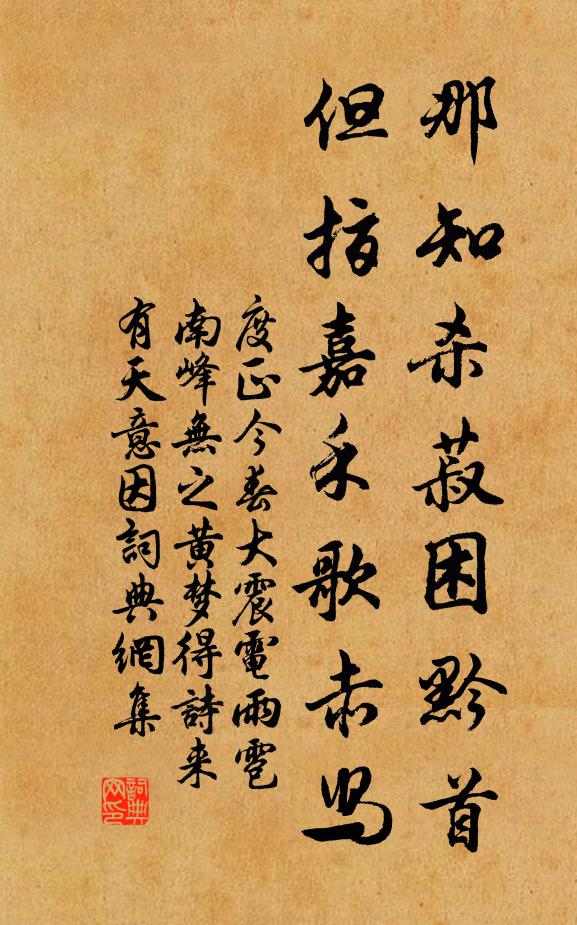 那知杀菽困黔首
但指嘉禾歌赤舄
度正今春大震電雨雹
南峰無之黄梦得詩来
有天意因詞典網集
詞典网印